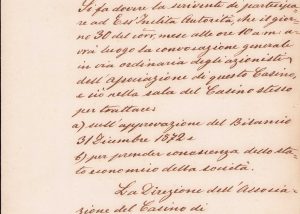 Si fa dovere la scrivente di partecipa-
re ad Est' Inclita Autorità, che il gior-
no 30 del corr. mese alle ore 10 a.m. a-
vrà luogo la convocazione generale
in via ordinaria degli azionisti
dell'Associazione di questo Casino,
e ciò nella sala del Casino stesso
per trattare:
a) sull'approvazione del Bilancio
31 Dicembre 1872 e
b) per prender conoscenza dello sta-
to economico della società.
La Direzione dell'Associa-
zione del Casino di